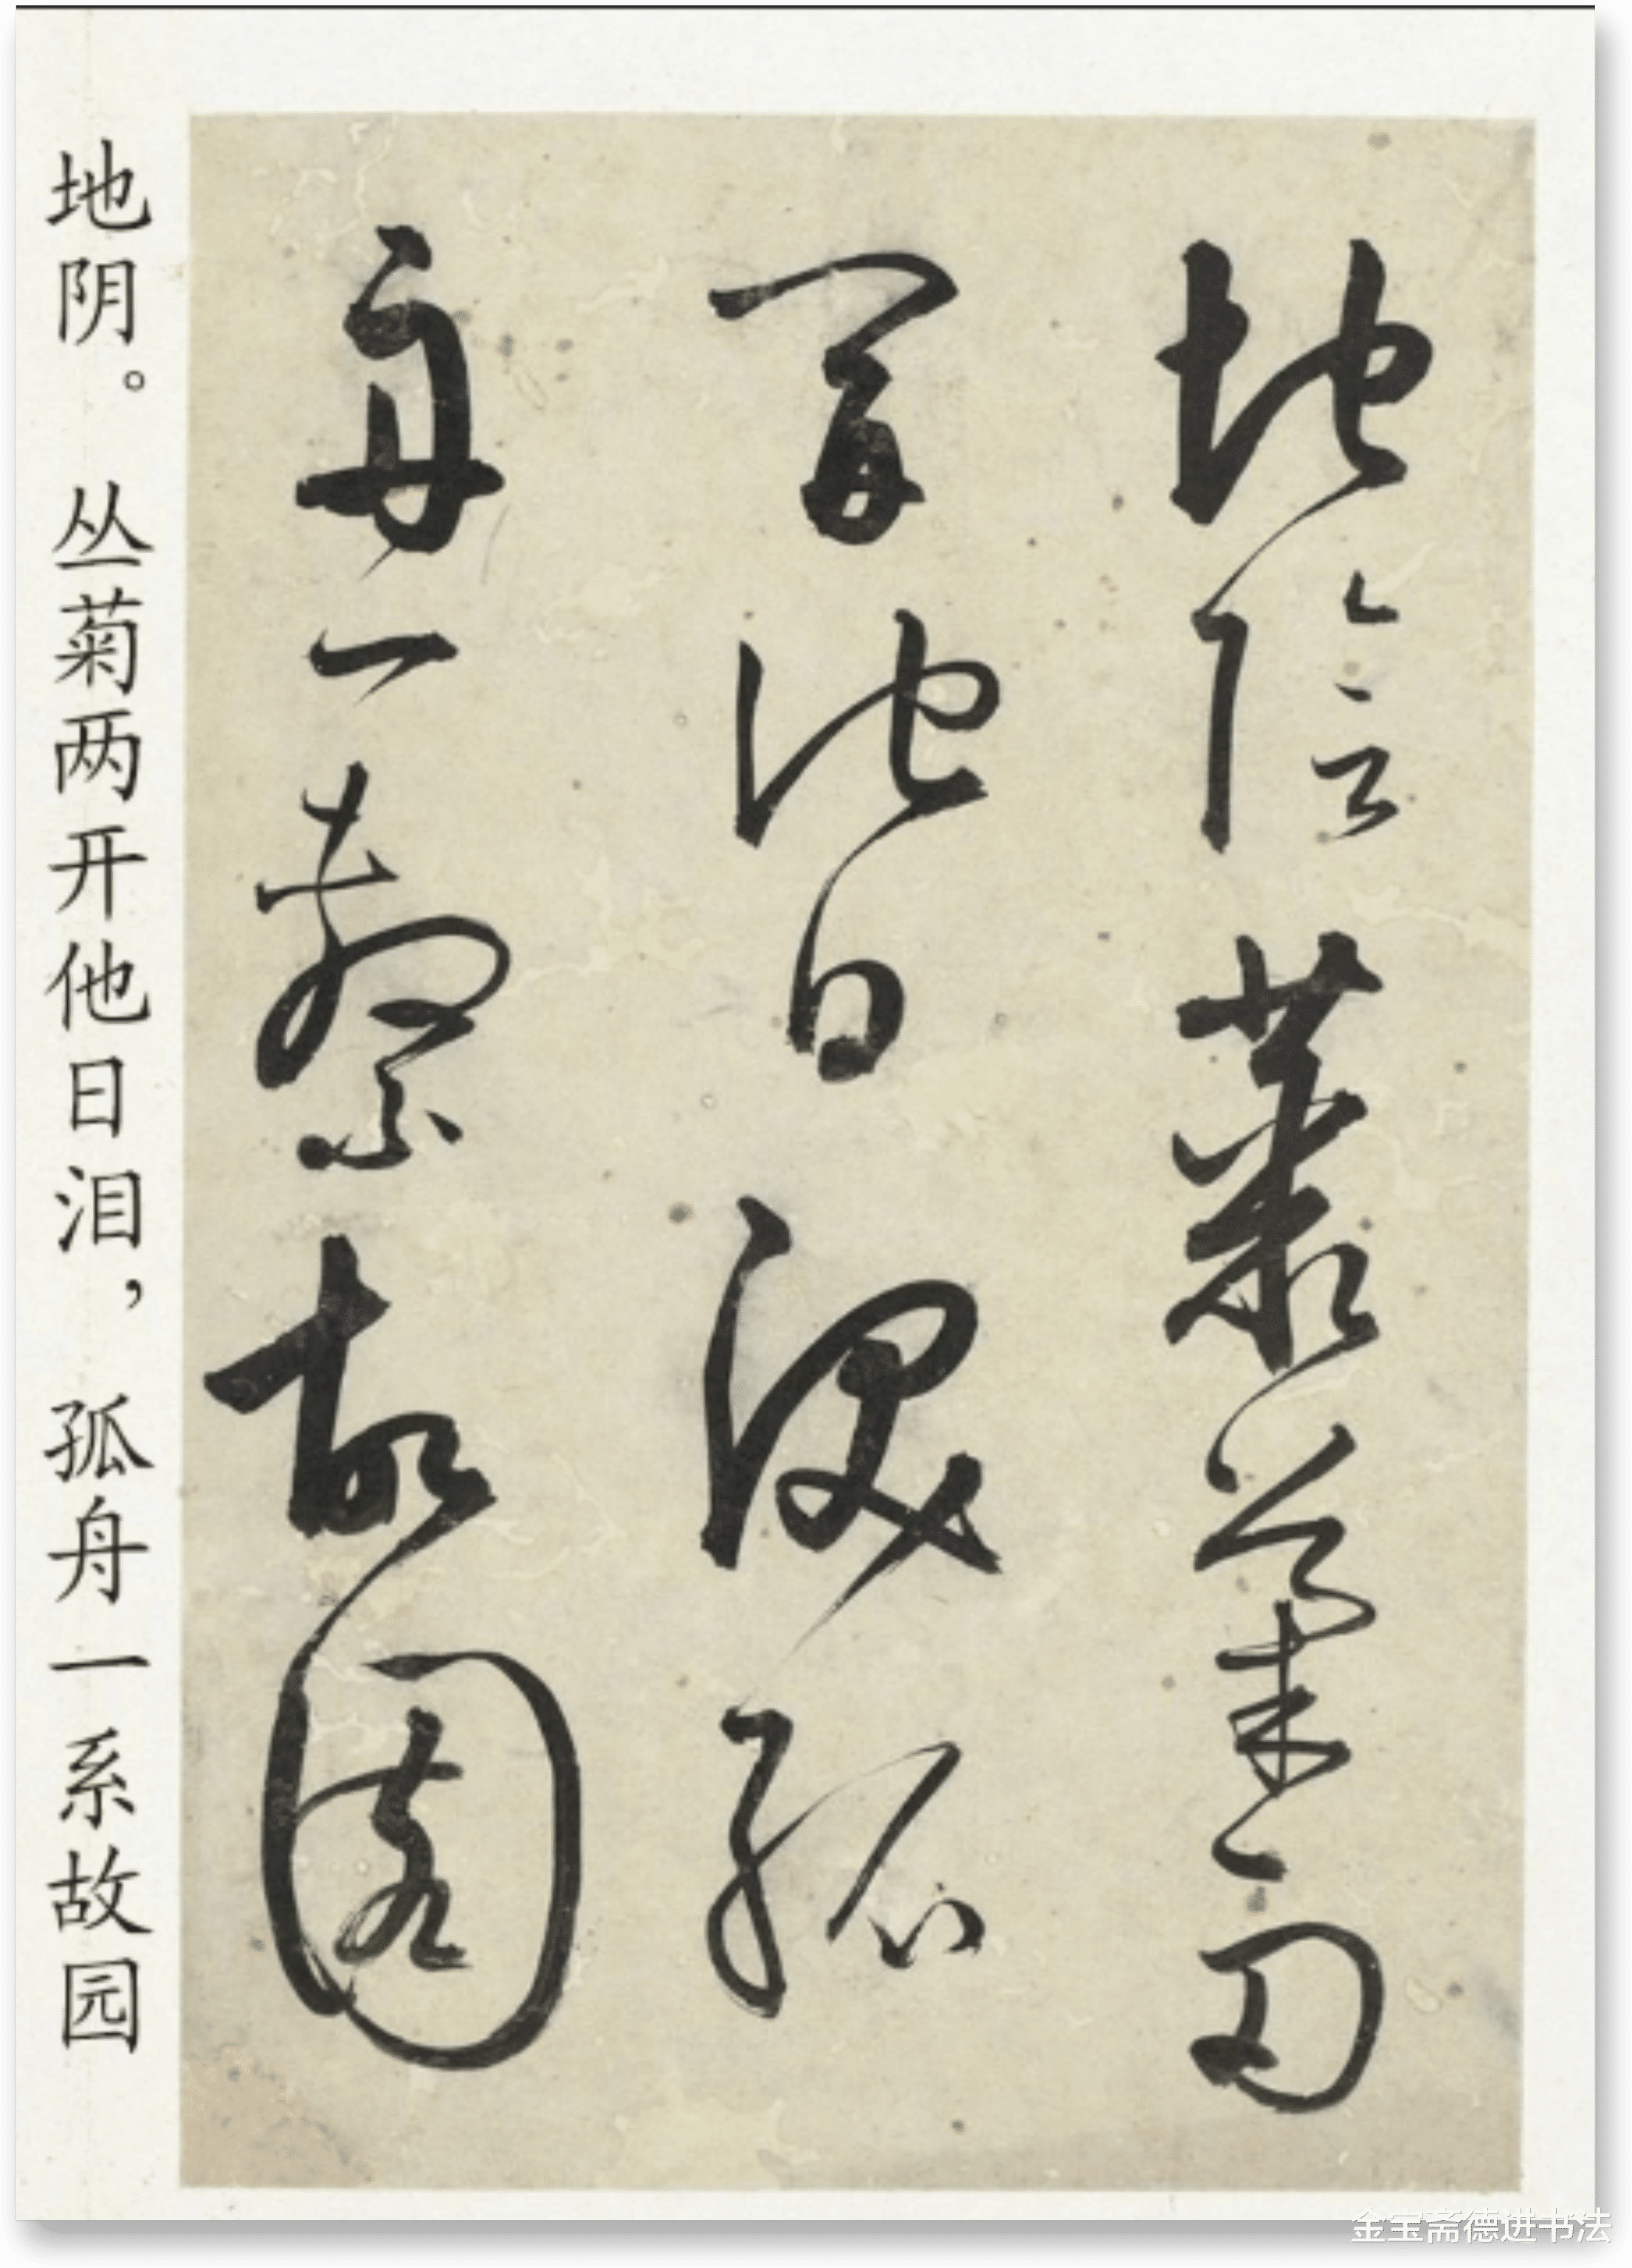 地陰叢菊两
開他日淚孤
舟一繫故園
地阴。丛菊两开他日泪，孤舟一系故园
金宝斋德进书法